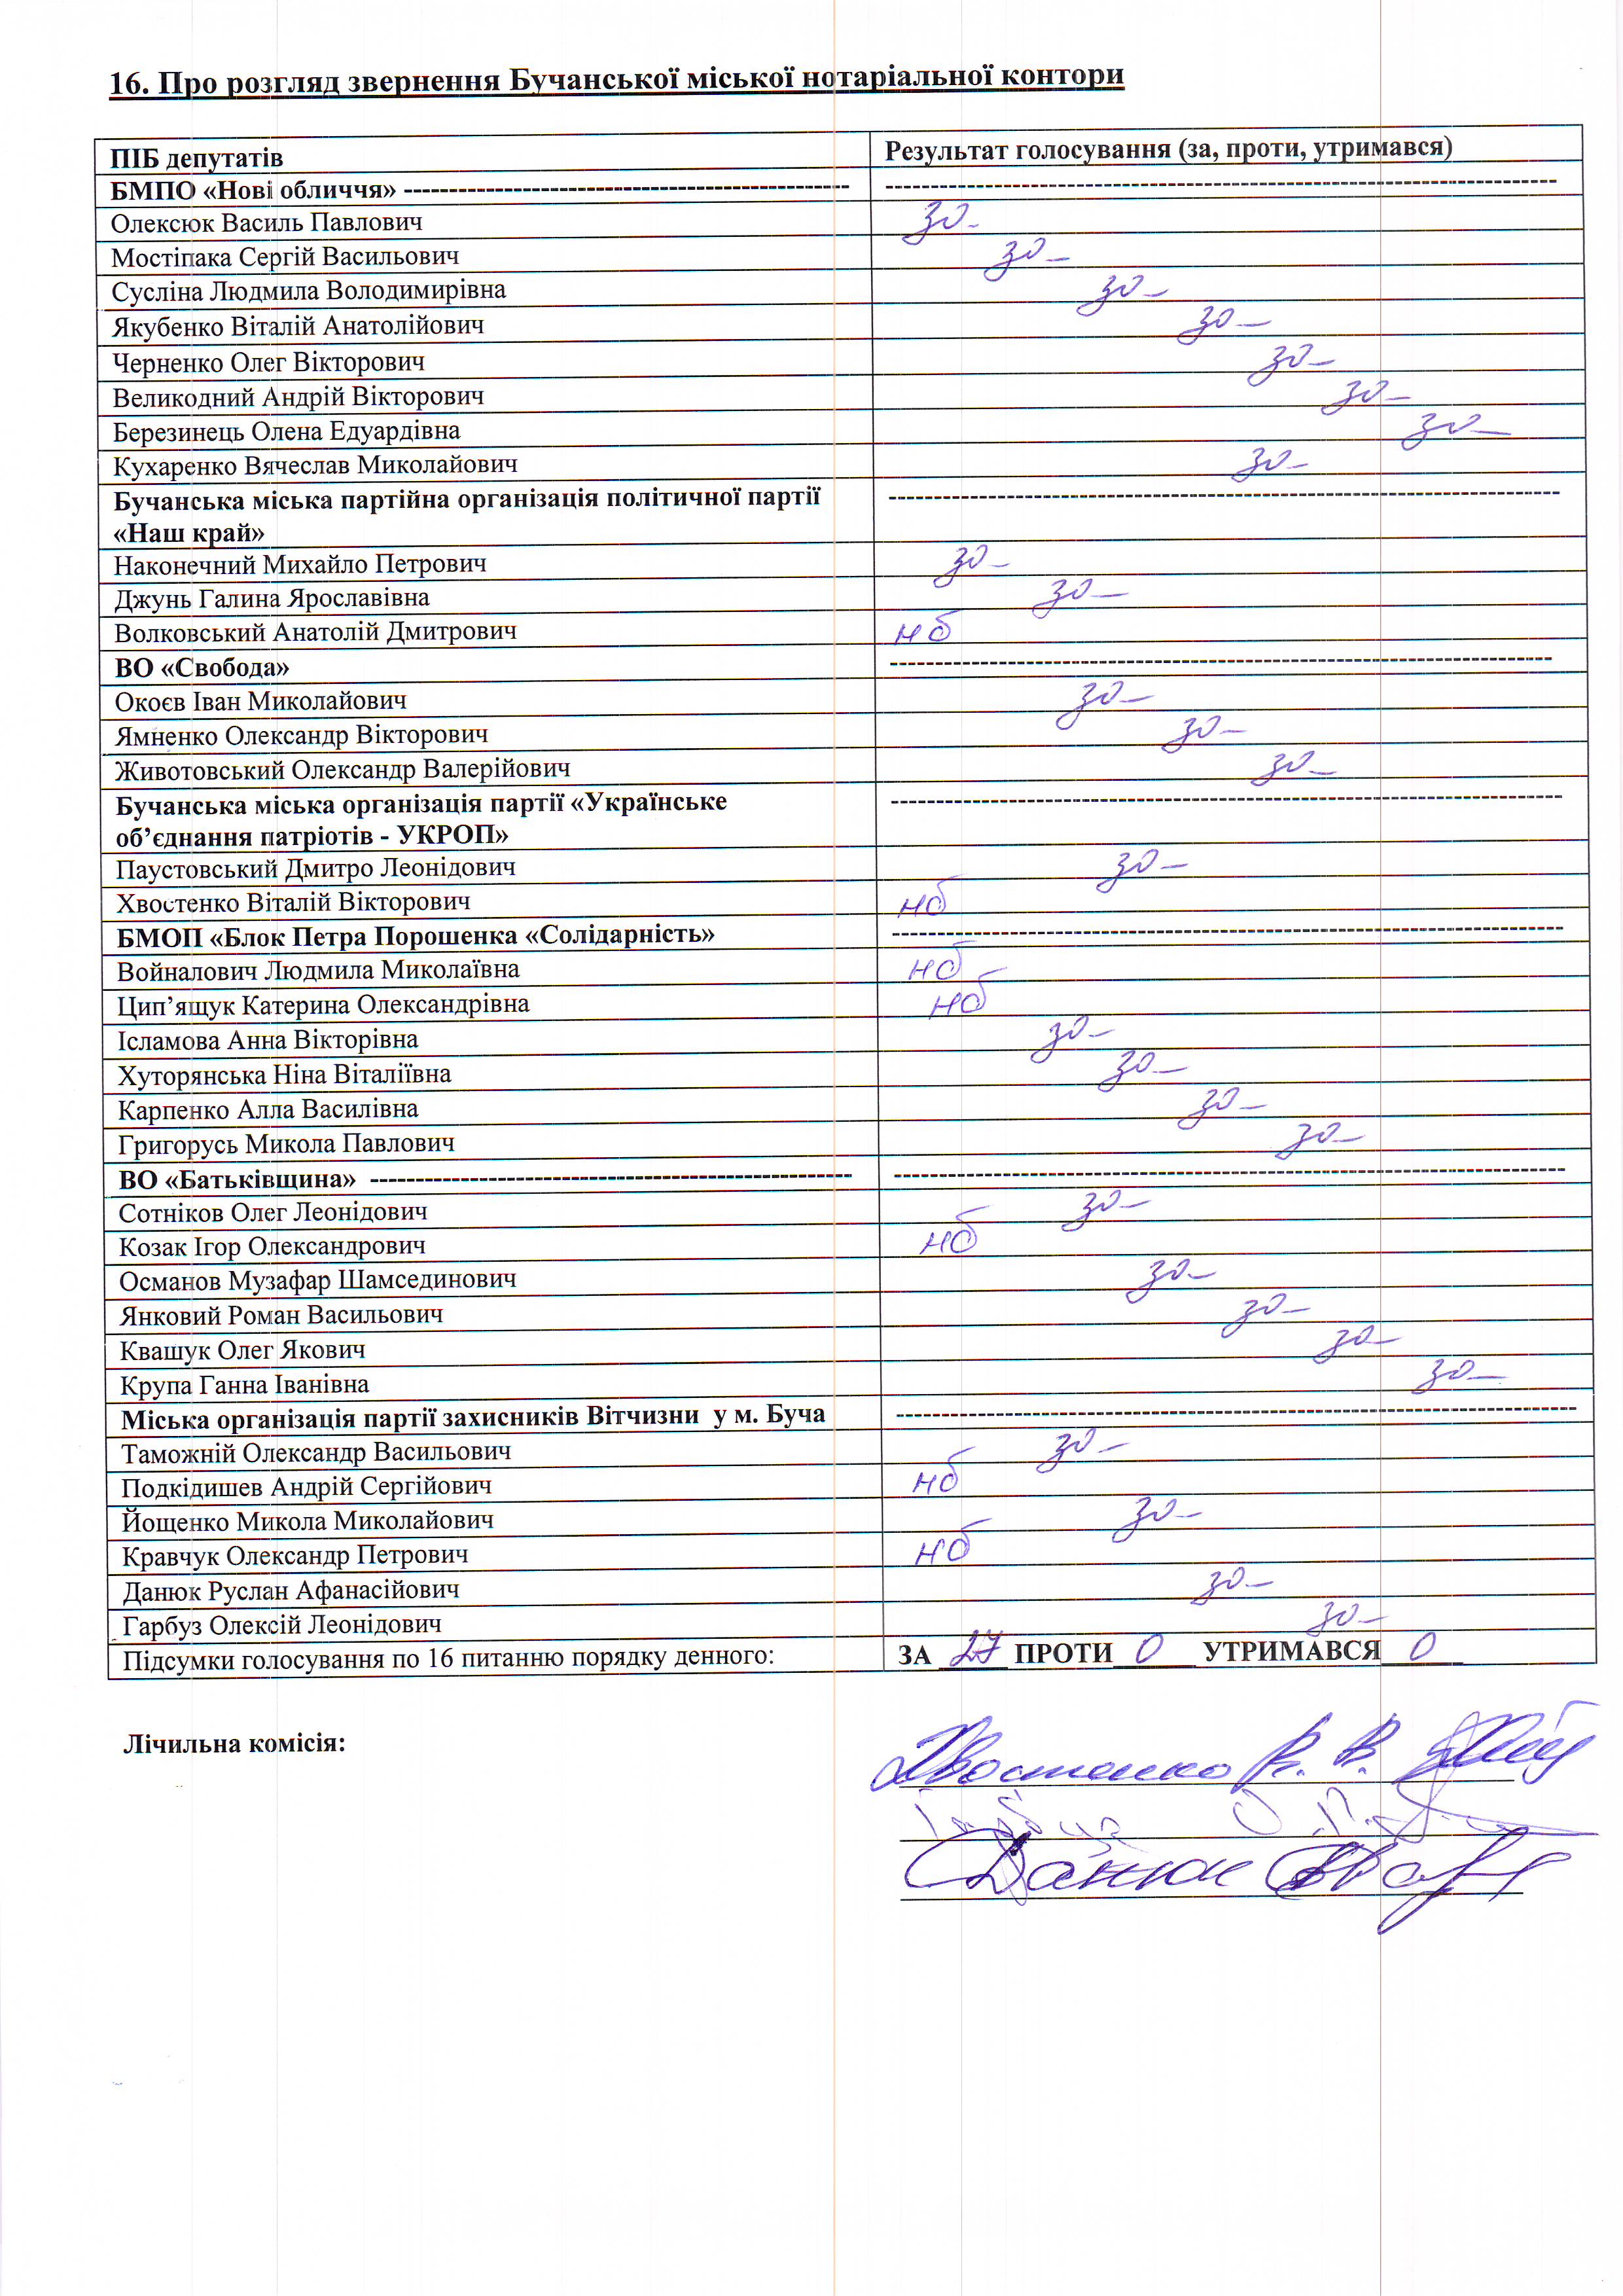 16. Про розгляд звернення Бучанської міської нотаріальної контори
ПІБ депутатів Результат голосування (за, проти, утримався)
БМПО «Нові обличчя» ------------------------------------------------- --------------------------------------------------------------------------
Олексюк Василь Павлович за
Мостіпака Сергій Васильович за
Сусліна Людмила Володимирівна за
Якубенко Віталій Анатолійович за
Черненко Олег Вікторович за
Великодний Андрій Вікторович за
Березинець Олена Едуардівна за
Кухаренко Вячеслав Миколайович за
Бучанська міська партійна організація політичної партії --------------------------------------------------------------------------
«Наш край»
Наконечний Михайло Петрович за
Джунь Галина Ярославівна за
Волковський Анатолій Дмитрович нб
ВО «Свобода» -------------------------------------------------------------------------
Окоєв Іван Миколайович за
Ямненко Олександр Вікторович за
Животовський Олександр Валерійович за
Бучанська міська організація партії «Українське --------------------------------------------------------------------------
об’єднання патріотів - УКРОП»
Паустовський Дмитро Леонідович за
Хвостенко Віталій Вікторович нб
БМОП «Блок Петра Порошенка «Солідарність» --------------------------------------------------------------------------
Войналович Людмила Миколаївна нб
Цип’ящук Катерина Олександрівна нб
Ісламова Анна Вікторівна за
Хуторянська Ніна Віталіївна за
Карпенко Алла Василівна за
Григорусь Микола Павлович за
ВО «Батьківщина» ----------------------------------------------------- --------------------------------------------------------------------------
Сотніков Олег Леонідович за
Козак Ігор Олександрович нб
Османов Музафар Шамсединович за
Янковий Роман Васильович за
Квашук Олег Якович за
Крупа Ганна Іванівна за
Міська організація партії захисників Вітчизни у м. Буча ---------------------------------------------------------------------------
Таможній Олександр Васильович за
Подкідишев Андрій Сергійович нб
Йощенко Микола Миколайович за
Кравчук Олександр Петрович нб
Данюк Руслан Афанасійович за
Гарбуз Олексій Леонідович за
Підсумки голосування по 16 питанню порядку денного: ЗА 27 ПРОТИ 0 УТРИМАВСЯ 0
Лічильна комісія:
Хвостенко В. В.
Гарбуз О.
Данюк